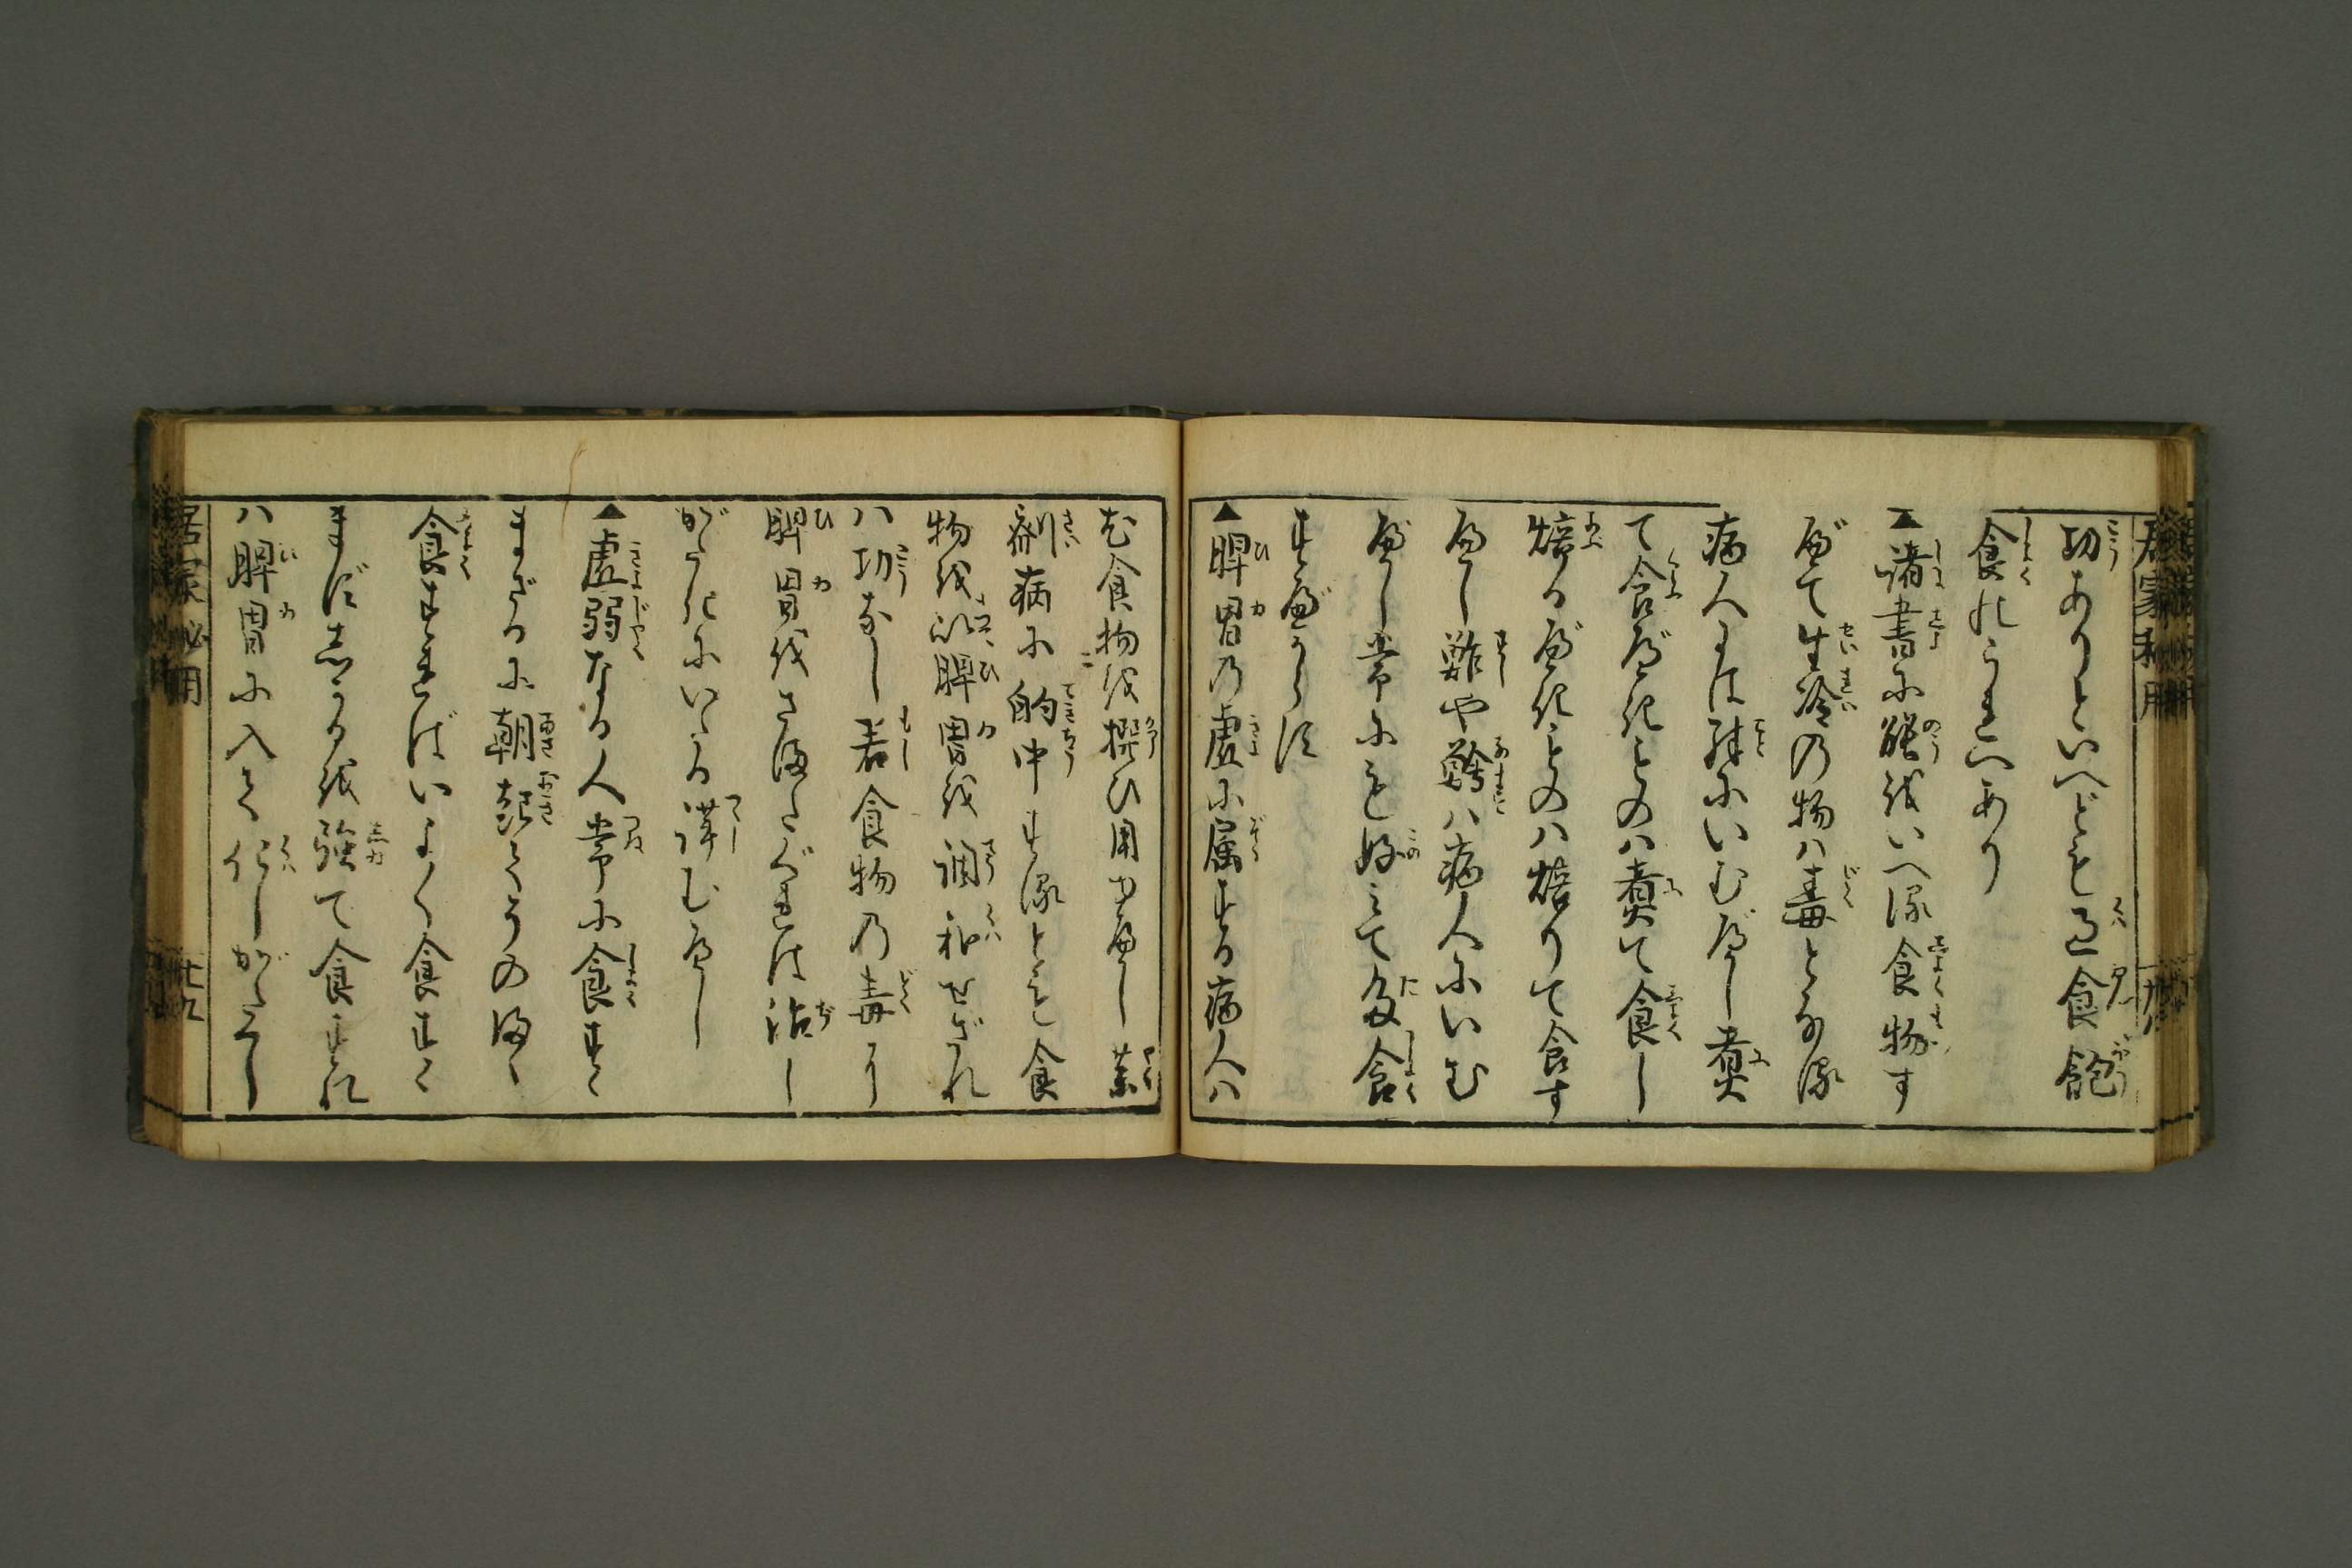 功ありといへども過食飽
食のうれへあり
▲諸書に能をいへる食物す
べて生冷の物ハ毒となる
病人には殊にいむべし煮
て食べきものハ煮て食し
焙るべきものハ焙りて食す
べし鮓や鱠ハ病人にいむ
べし常にも好みて多食
すべからず
▲脾胃の虚に属する病人ハ
先食物を撰び用ゆべし薬
剤病に的中するとも食
物を以脾胃を調和せざれ
ハ功なし若食物の毒より
脾胃をさまたぐれは治し
がたきにいたる謹むべし
▲虚弱なる人常に食すゝ
まざるに朝起てそのまゝ
食すればいよ〱食すゝ
まずしかるを強て食すれ
ハ脾胃に入て化しがたし
居家必用
廿九